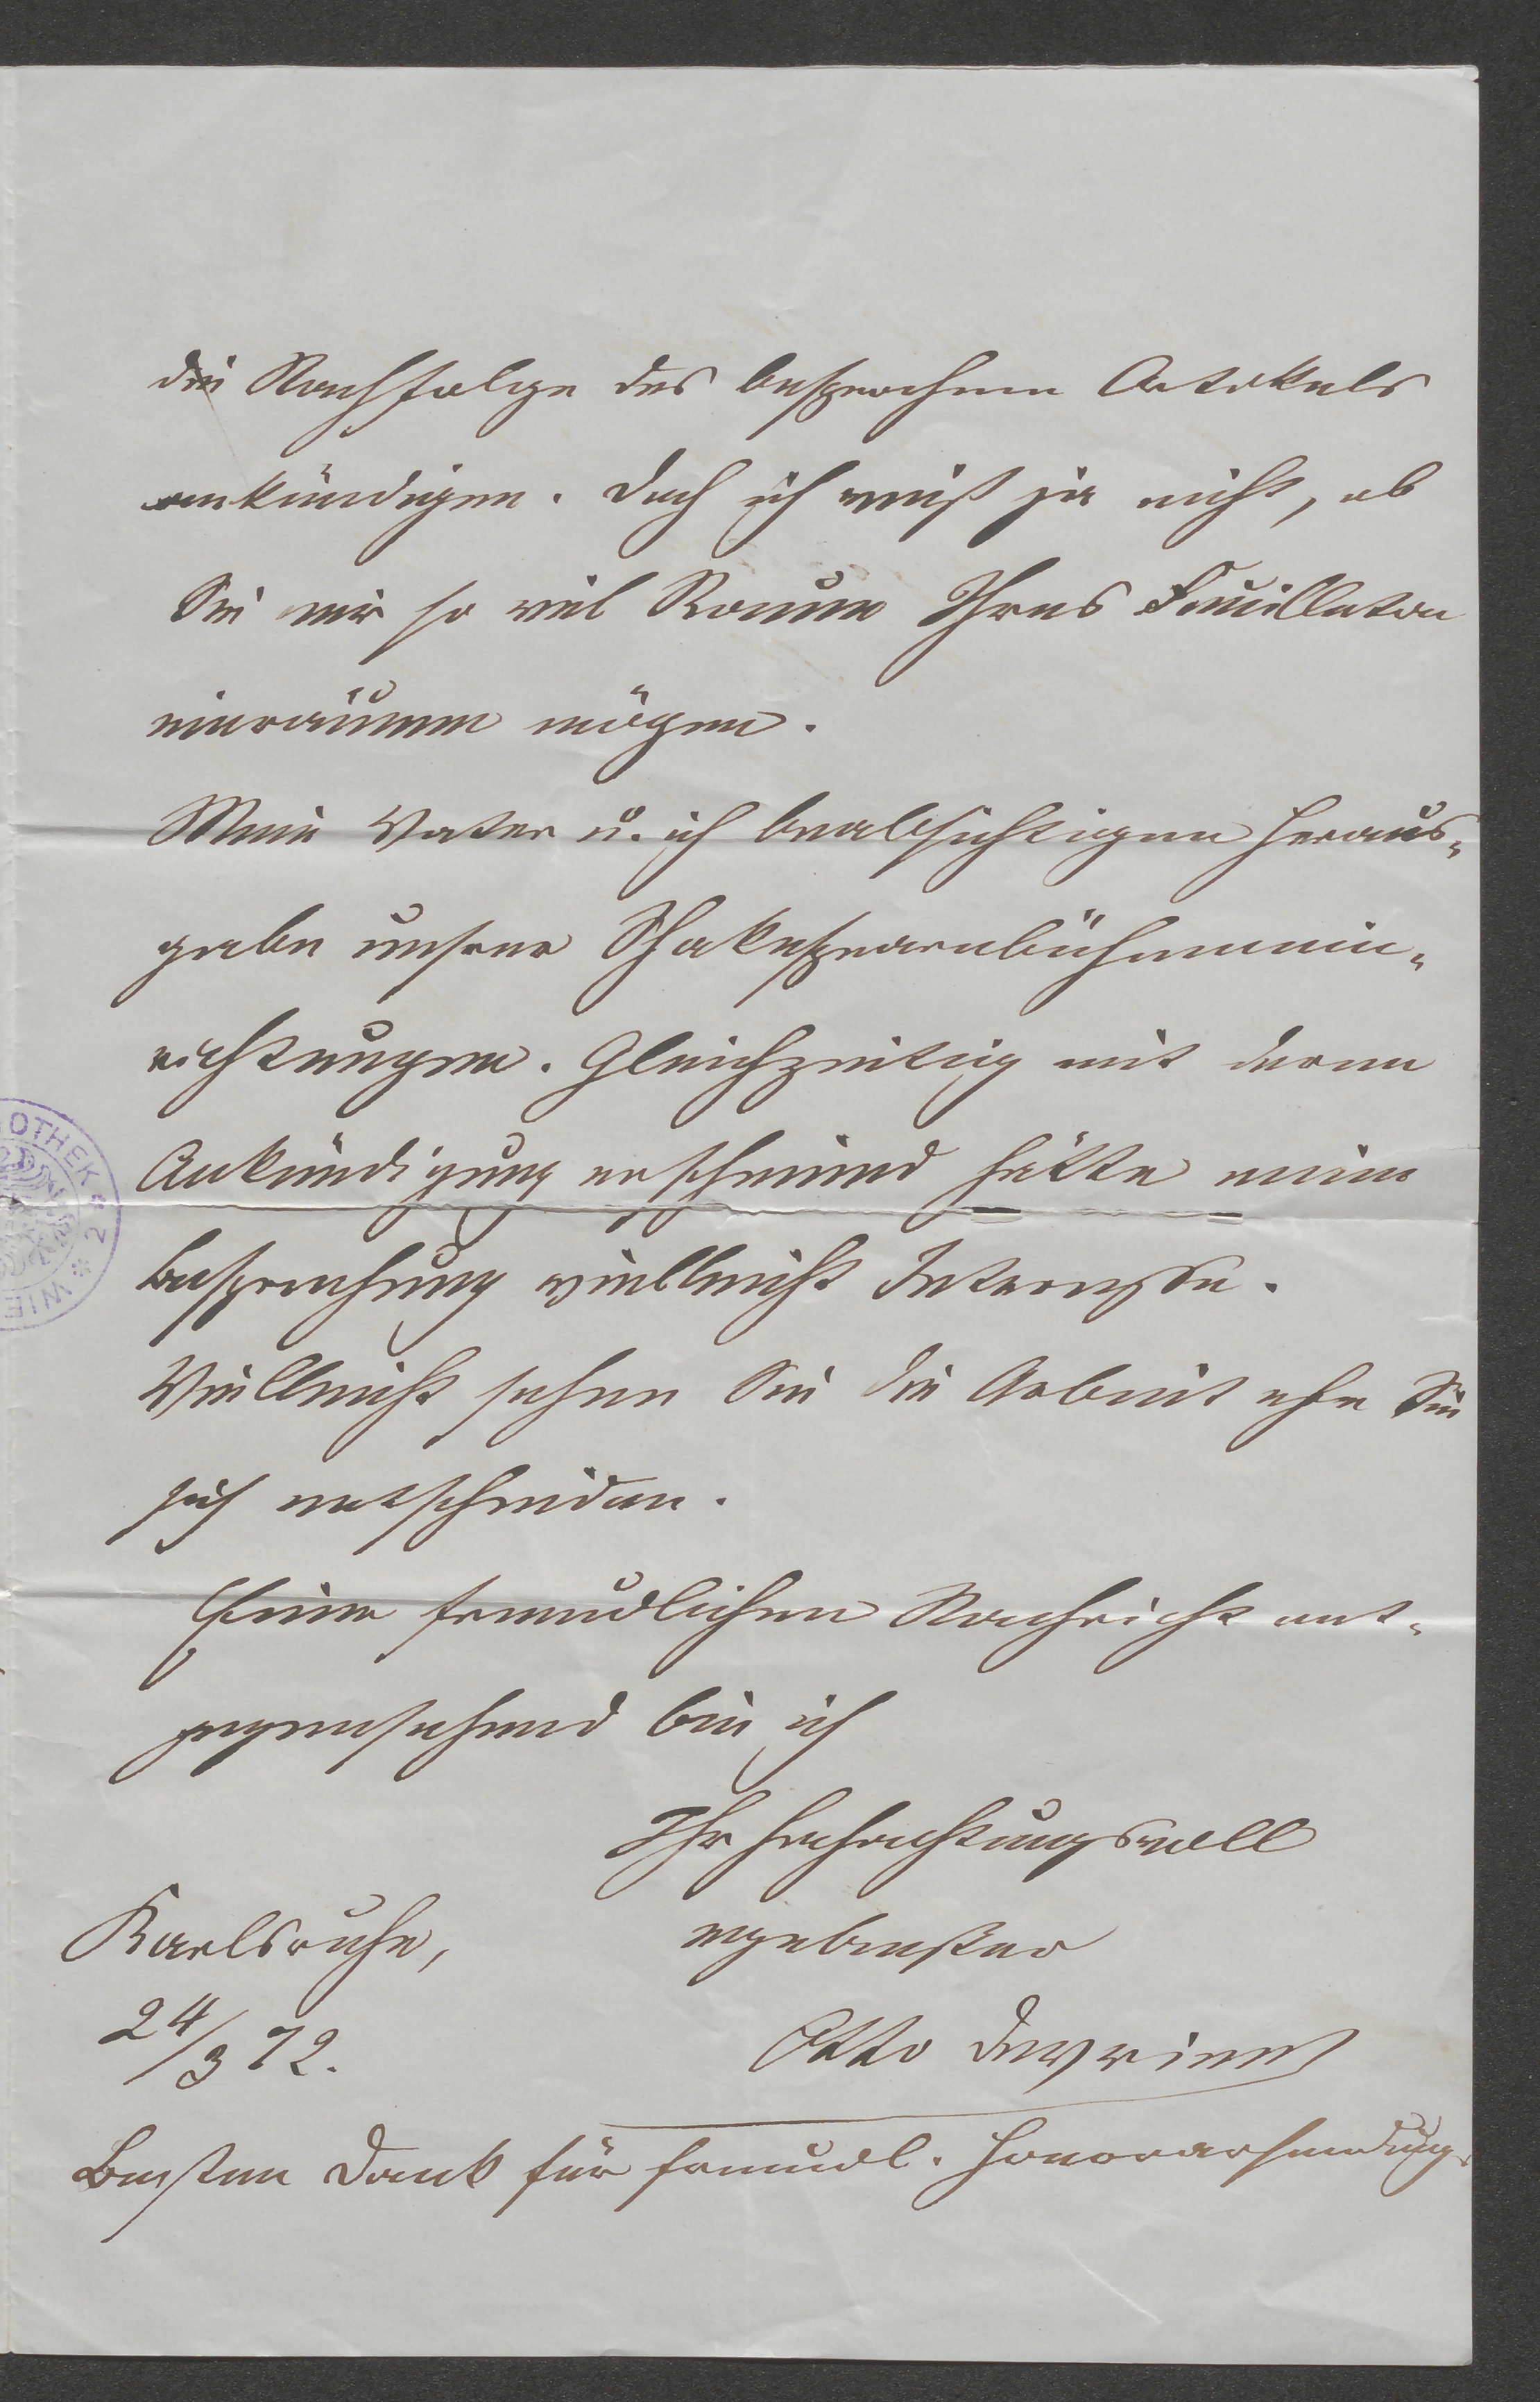 die Nachfolge des besprochenen Artikels
ankündigen. Doch ich weiß ja nicht, ob
Sie mir so viel Raum Ihres Feuilleton
einräumen mögen.
Mein Vater u. ich beabsichtigen Heraus-
gabe unsrer Shakespearebühnenein-
richtungen. Gleichzeitig mit deren
Ankündigung erscheinend hätte meine
Besprechung vielleicht Interesse.
Vielleicht sehen Sie die Arbeit ehe Sie
sich entscheiden.
Einer freundlichen Nachricht ent-
gegensehend bin ich
Ihr hochachtungsvoll
ergebenster
Karlsruhe,
24/3 72.
Otto Devrient
Besten Dank für freundl. Honorarsendung.
OTHEK * 2 * WIE